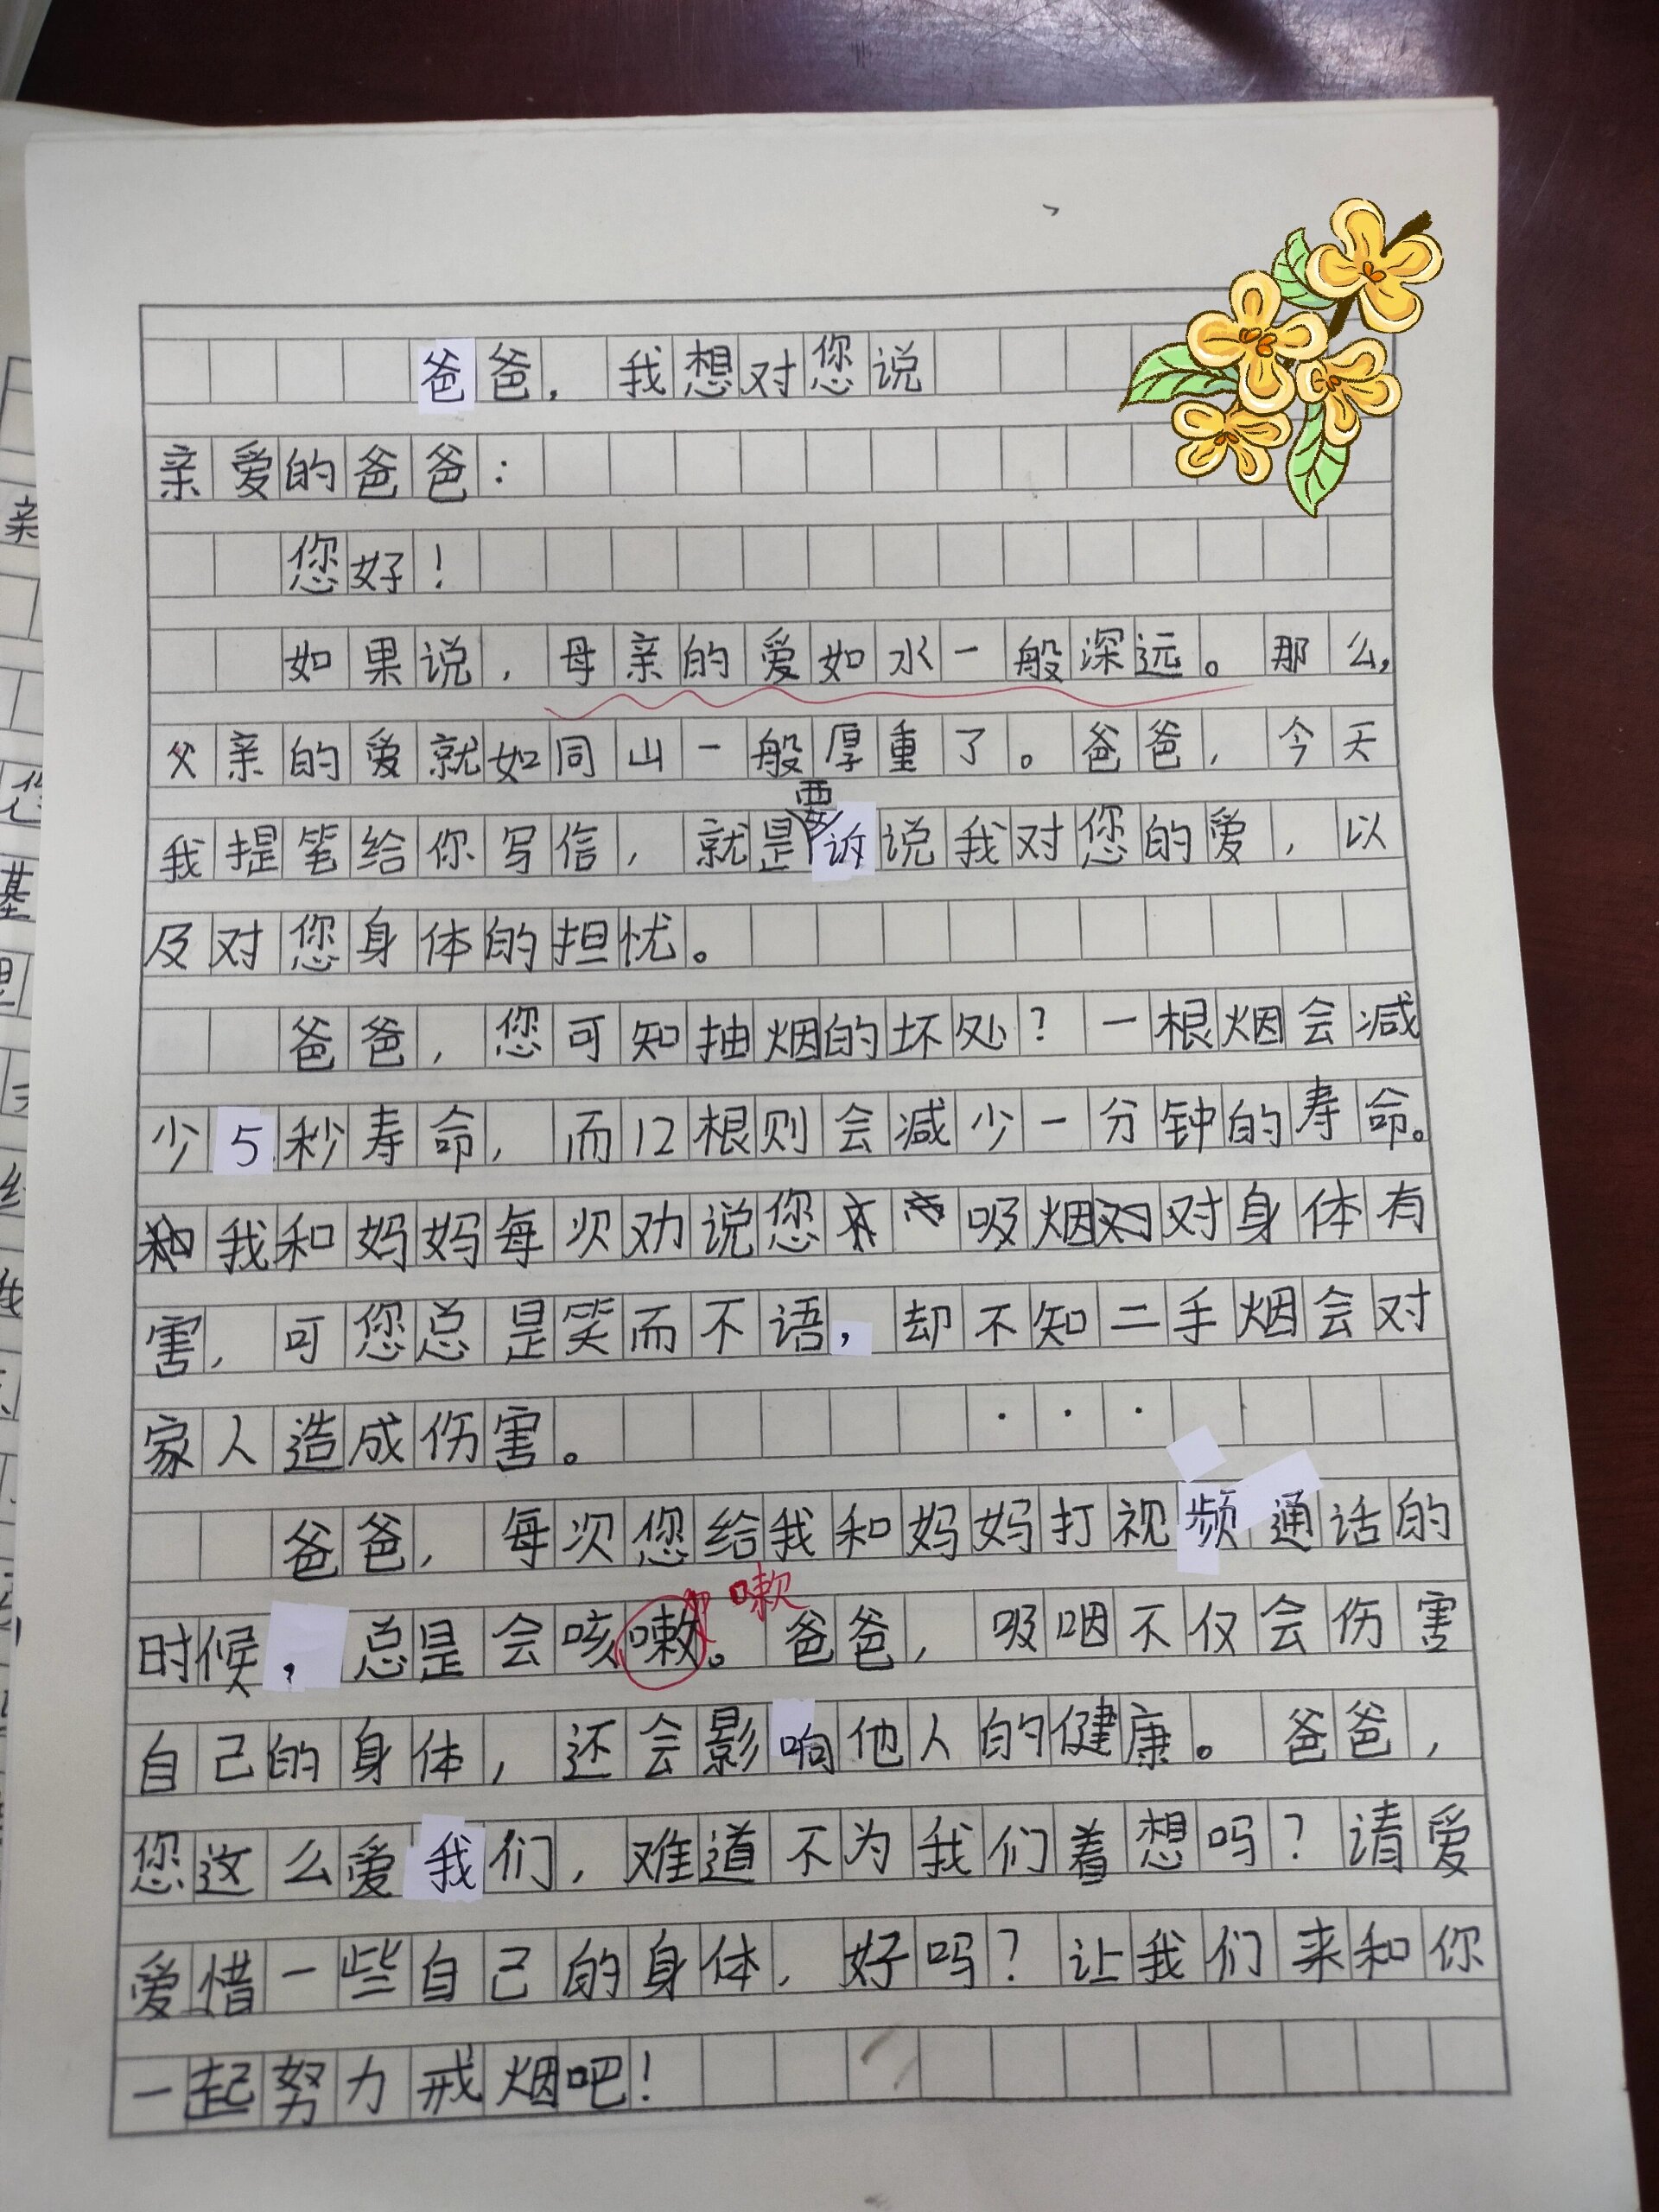 爸爸，我想对您说
亲爱的爸爸：
您好！
如果说，母亲的爱如水一般深远。那么，
父亲的爱就如同山一般厚重了。爸爸，今天
我提笔给你写信，就是要诉说我对您的爱，以
及对您身体的担忧。
爸爸，您可知抽烟的坏处？一根烟会减
少5秒寿命，而12根则会减少一分钟的寿命。
我和妈妈每次劝说您吸烟对身体有
害，可您总是笑而不语，却不知二手烟会对
家人造成伤害。
爸爸，每次您给我和妈妈打视频通话的
嗽
时候，总是会咳嗽。爸爸，吸咽不仅会伤害
自己的身体，还会影响他人的健康。爸爸，
您这么爱我们，难道不为我们着想吗？请爱
爱惜一些自己的身体，好吗？让我们来和你
一起努力戒烟吧！